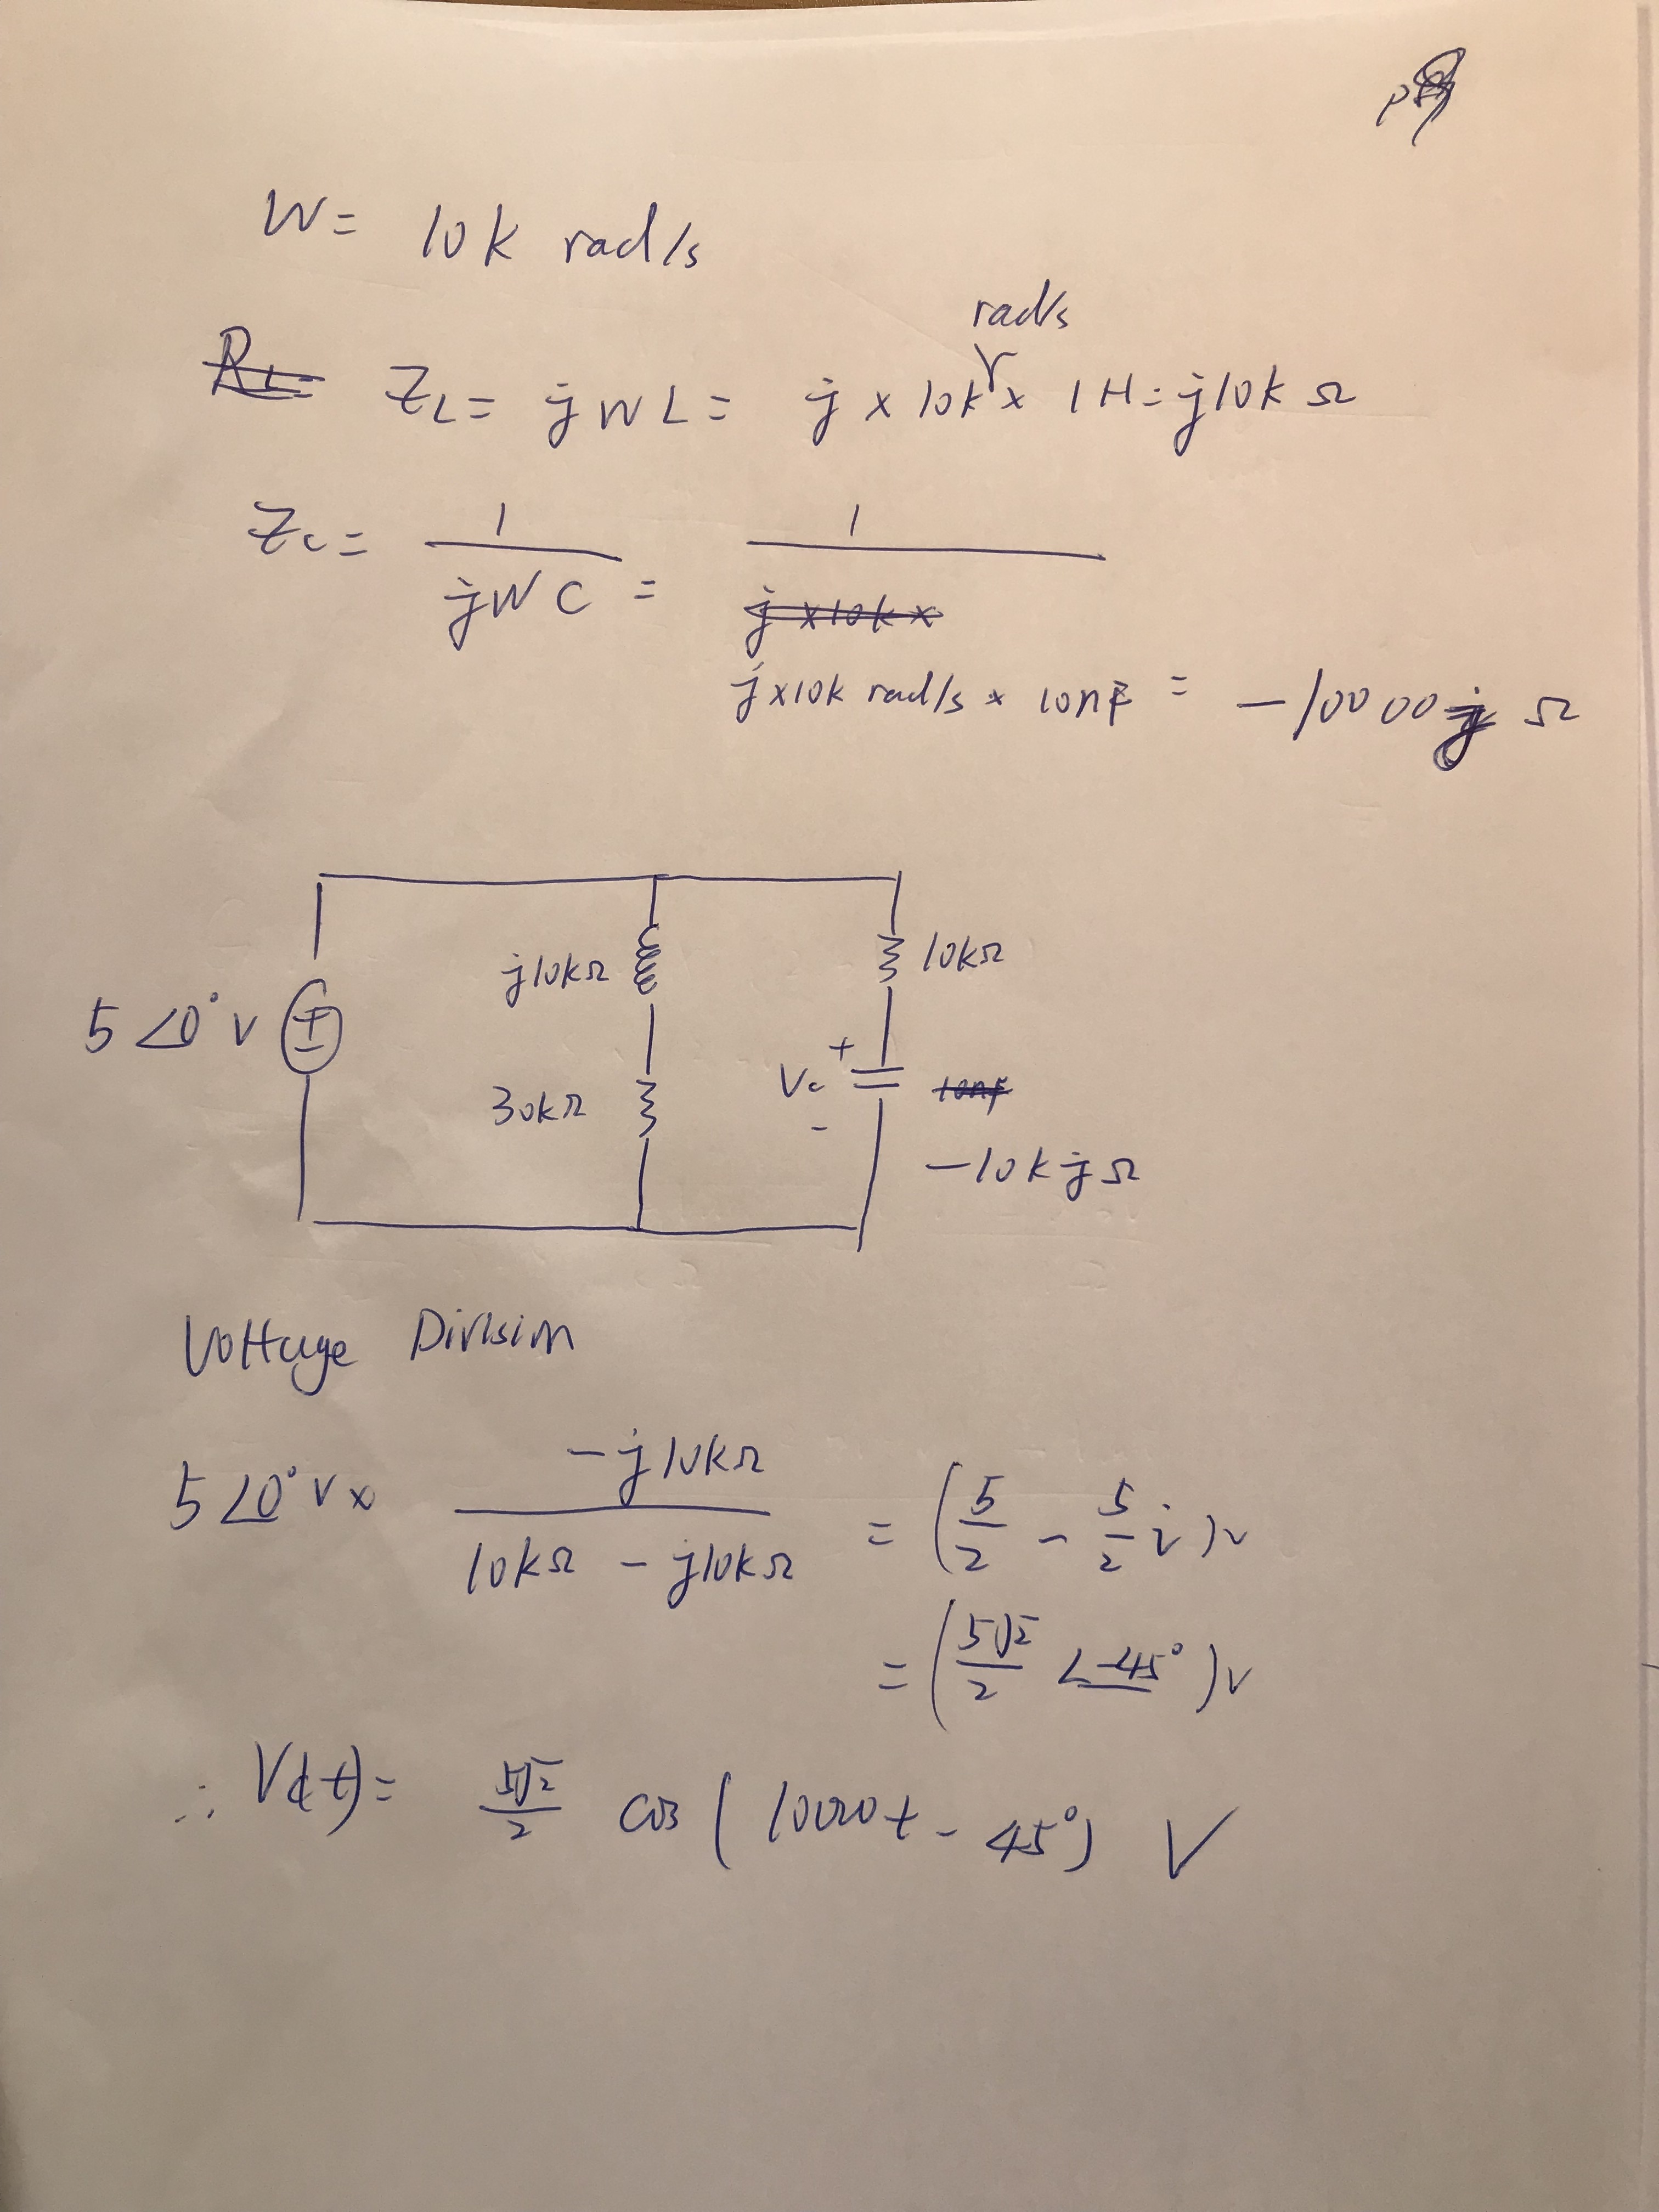 W = 10k rad/s
rad/s
ZL = jWL = j × 10k × 1H = j10k Ω
Zc = 1 / jWC = 1 / j×10k rad/s × 10nF = -10000j Ω
j10kΩ
10kΩ
5∠0° V
+
-
30kΩ
Vc
+
-
10nF
-10kjΩ
Voltage Division
5∠0° V × -j10kΩ / 10kΩ - j10kΩ = (5/2 - 5/2 i) V
= (5√2/2 ∠-45°) V
∴ Vc(t) = 5√2/2 cos(10000t - 45°) V